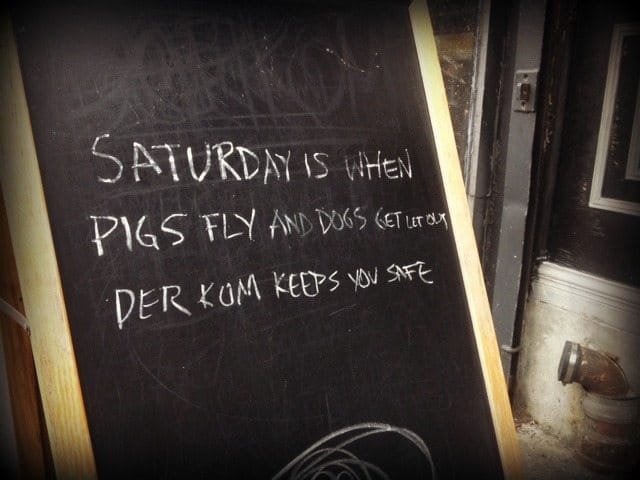 SATURDAY IS WHEN
PIGS FLY AND DOGS GET LET OUT
DER KOM KEEPS YOU SAFE